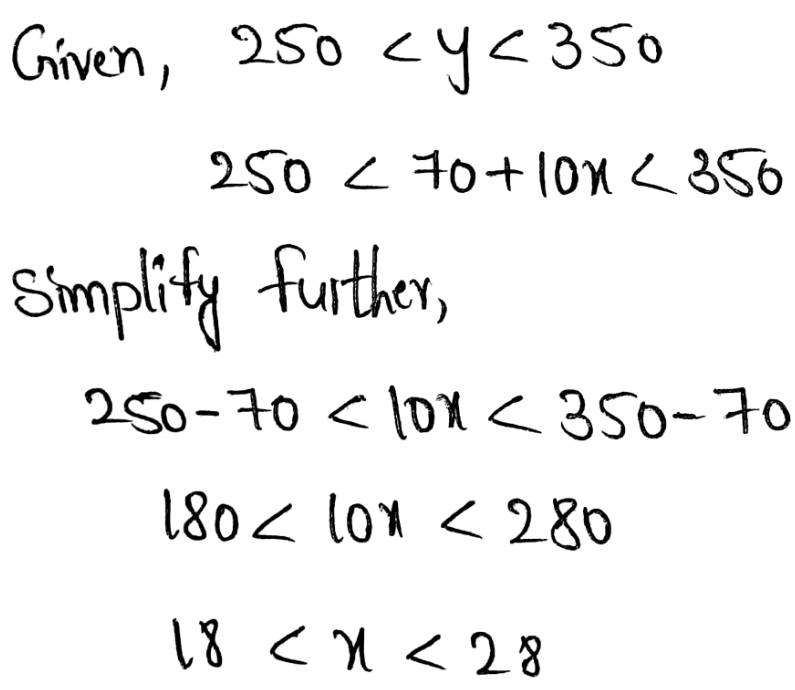 Given, 250 < y < 350
250 < 70+10x < 350
Simplify further,
250-70 < 10x < 350-70
180 < 10x < 280
18 < x < 28